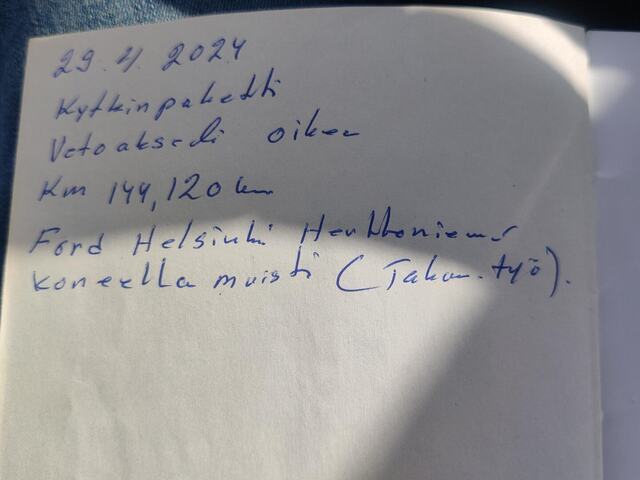 29.4.2024
Kytkinpaketti
Vetoakseli oikea
Km 144,120 km
Ford Helsinki Herttoniemi
koneella muisti (Takuu.työ).